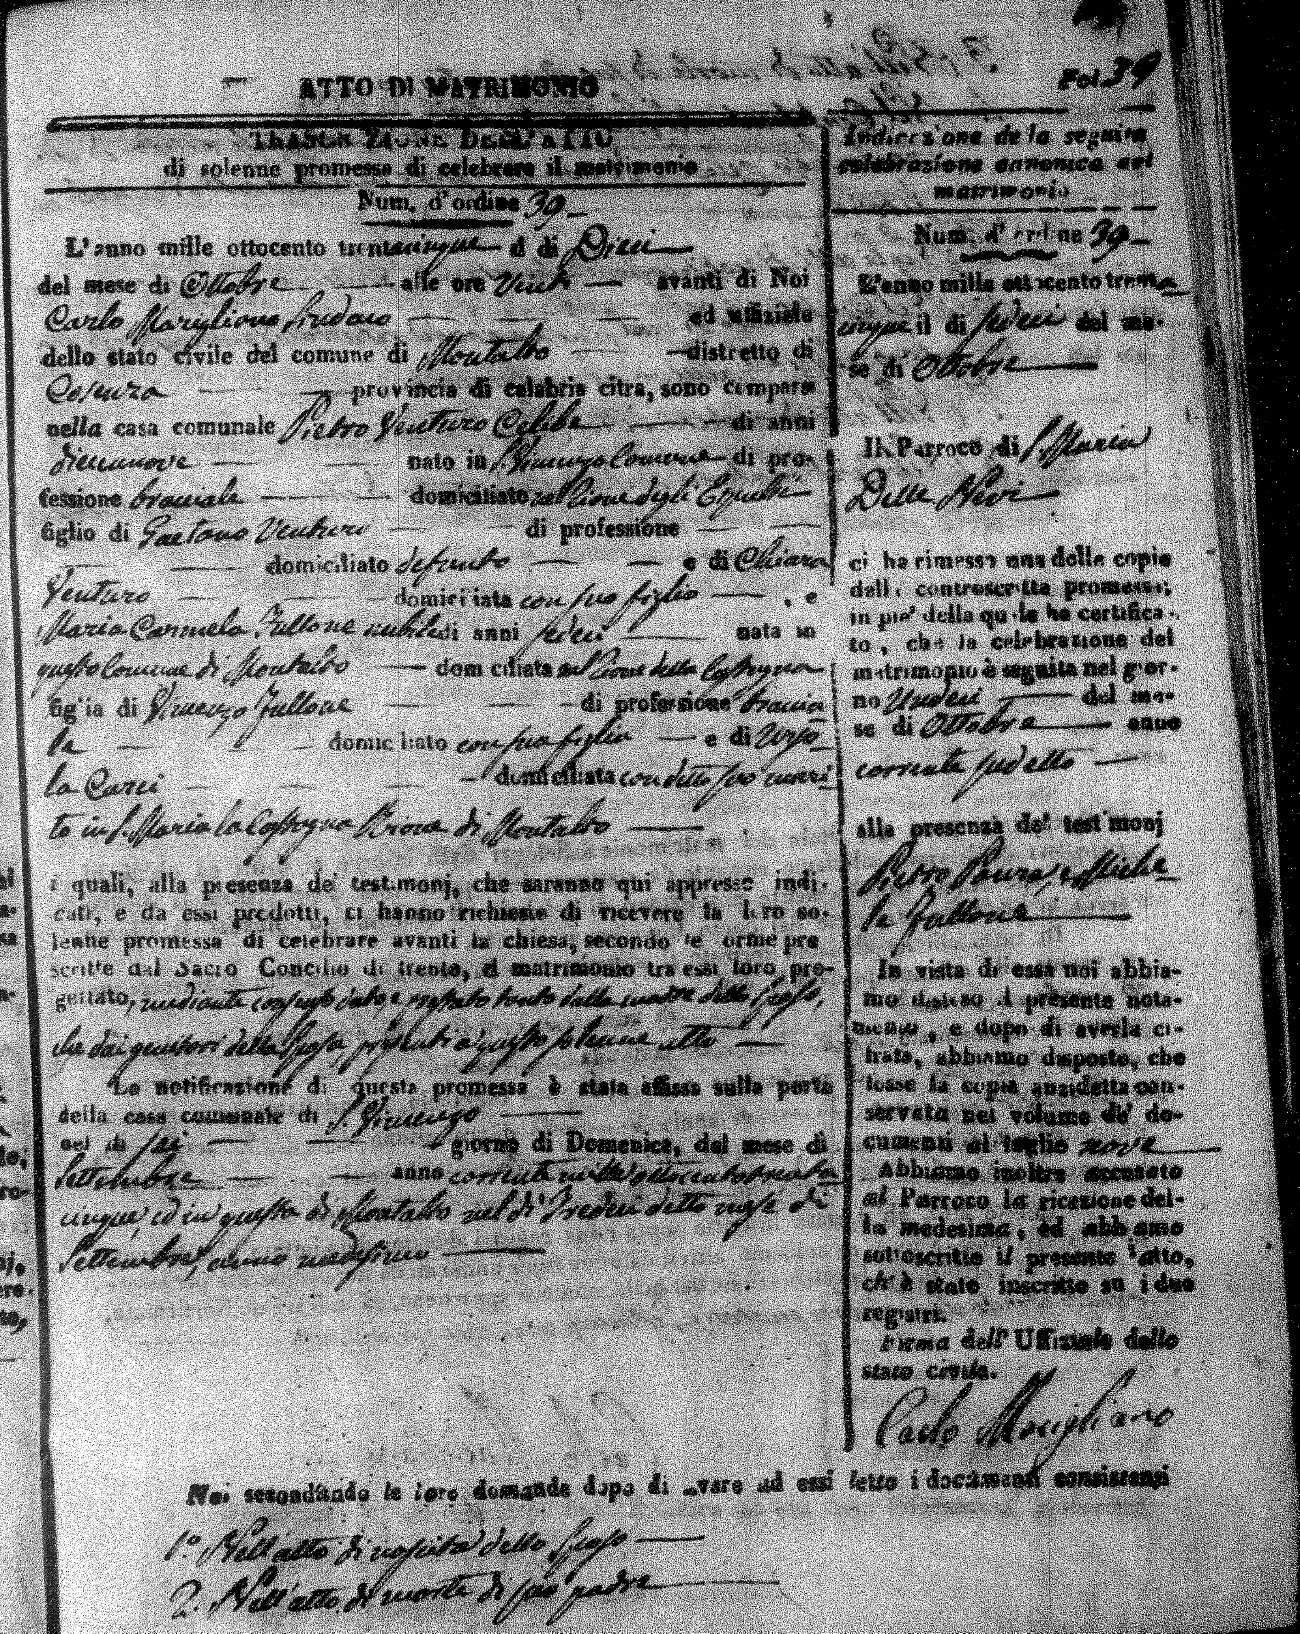 Fol. 39
ATTO DI MATRIMONIO
TRASCRIZIONE DELL'ATTO
di solenne promessa di celebrare il matrimonio
Num. d'ordine 39
L'anno mille ottocento trentacinque il dì Dieci
del mese di Ottobre alle ore Venti avanti di Noi
Carlo Marigliano Sindaco ed uffiziale
dello stato civile del comune di Montalto distretto di
Cosenza provincia di calabria citra, sono comparsi
nella casa comunale Pietro Venturo Celibe di anni
diecinnove nato in S. Vincenzo Comune di pro-
fessione bracciale domiciliato nel Rione degli
figlio di Gaetano Venturo di professione
domiciliato defunto e di Chiara
Venturo domiciliata con suo figlio , e
Maria Carmela Fullone nubile di anni sedeci nata in
questo Comune di Montalto domiciliata nel Rione della
figlia di Vincenzo Fullone di professione braccia
le domiciliato con sua figlia e di Orso
la Carci domiciliata con detto suo mari
to in S. Maria la Rione di Montalto
i quali, alla presenza de' testimonj, che saranno qui appresso indi-
cati, e da essi prodotti, ci hanno richiesto di ricevere la loro so-
lenne promessa di celebrare avanti la chiesa, secondo le forme pre
scritte dal Sacro Concilio di trento, il matrimonio tra essi loro pro-
gettato, mediante consenso dato e prestato tanto dalla madre dello Sposo,
che dai genitori della Sposa presenti a questo solenne atto
La notificazione di questa promessa è stata affissa sulla porta
della casa comunale di S. Vincenzo
nel dì sei giorno di Domenica, del mese di
Settembre anno corrente mille ottocento trenta
cinque ed in questa di Montalto nel dì Tredeci detto mese di
Settembre, anno medesimo
Indicazione della seguita
celebrazione canonica del
matrimonio
Num. d'ordine 39
L'anno mille ottocento trenta
cinque il dì sedeci del me-
se di Ottobre
Il Parroco di S. Maria
Delle Nevi
ci ha rimessa una delle copie
della controscritta promessa;
in piè della quale ha certifica-
to, che la celebrazione del
matrimonio è seguita nel gior-
no Undeci del me-
se di Ottobre anno
corrente sudetto
alla presenza de' testimonj
Pietro Paura, e Miche
le Fullone
In vista di essa noi abbia-
mo disteso il presente nota-
mento, e dopo di averla ci-
frata, abbiamo disposto, che
fosse la copia anzidetta con-
servata nel volume de' do-
cumenti al foglio nove
Abbiamo inoltre accusato
al Parroco la ricezione del-
la medesima, ed abbiamo
sottoscritto il presente atto,
ch'è stato inscritto su i due
registri.
Firma dell'Uffiziale dello
stato civile.
Carlo Marigliano
Noi secondando le loro domande dopo di avere ad essi letto i documenti consistenti
1.° Nell'atto di nascita dello Sposo
2. Nell'atto di morte di suo padre